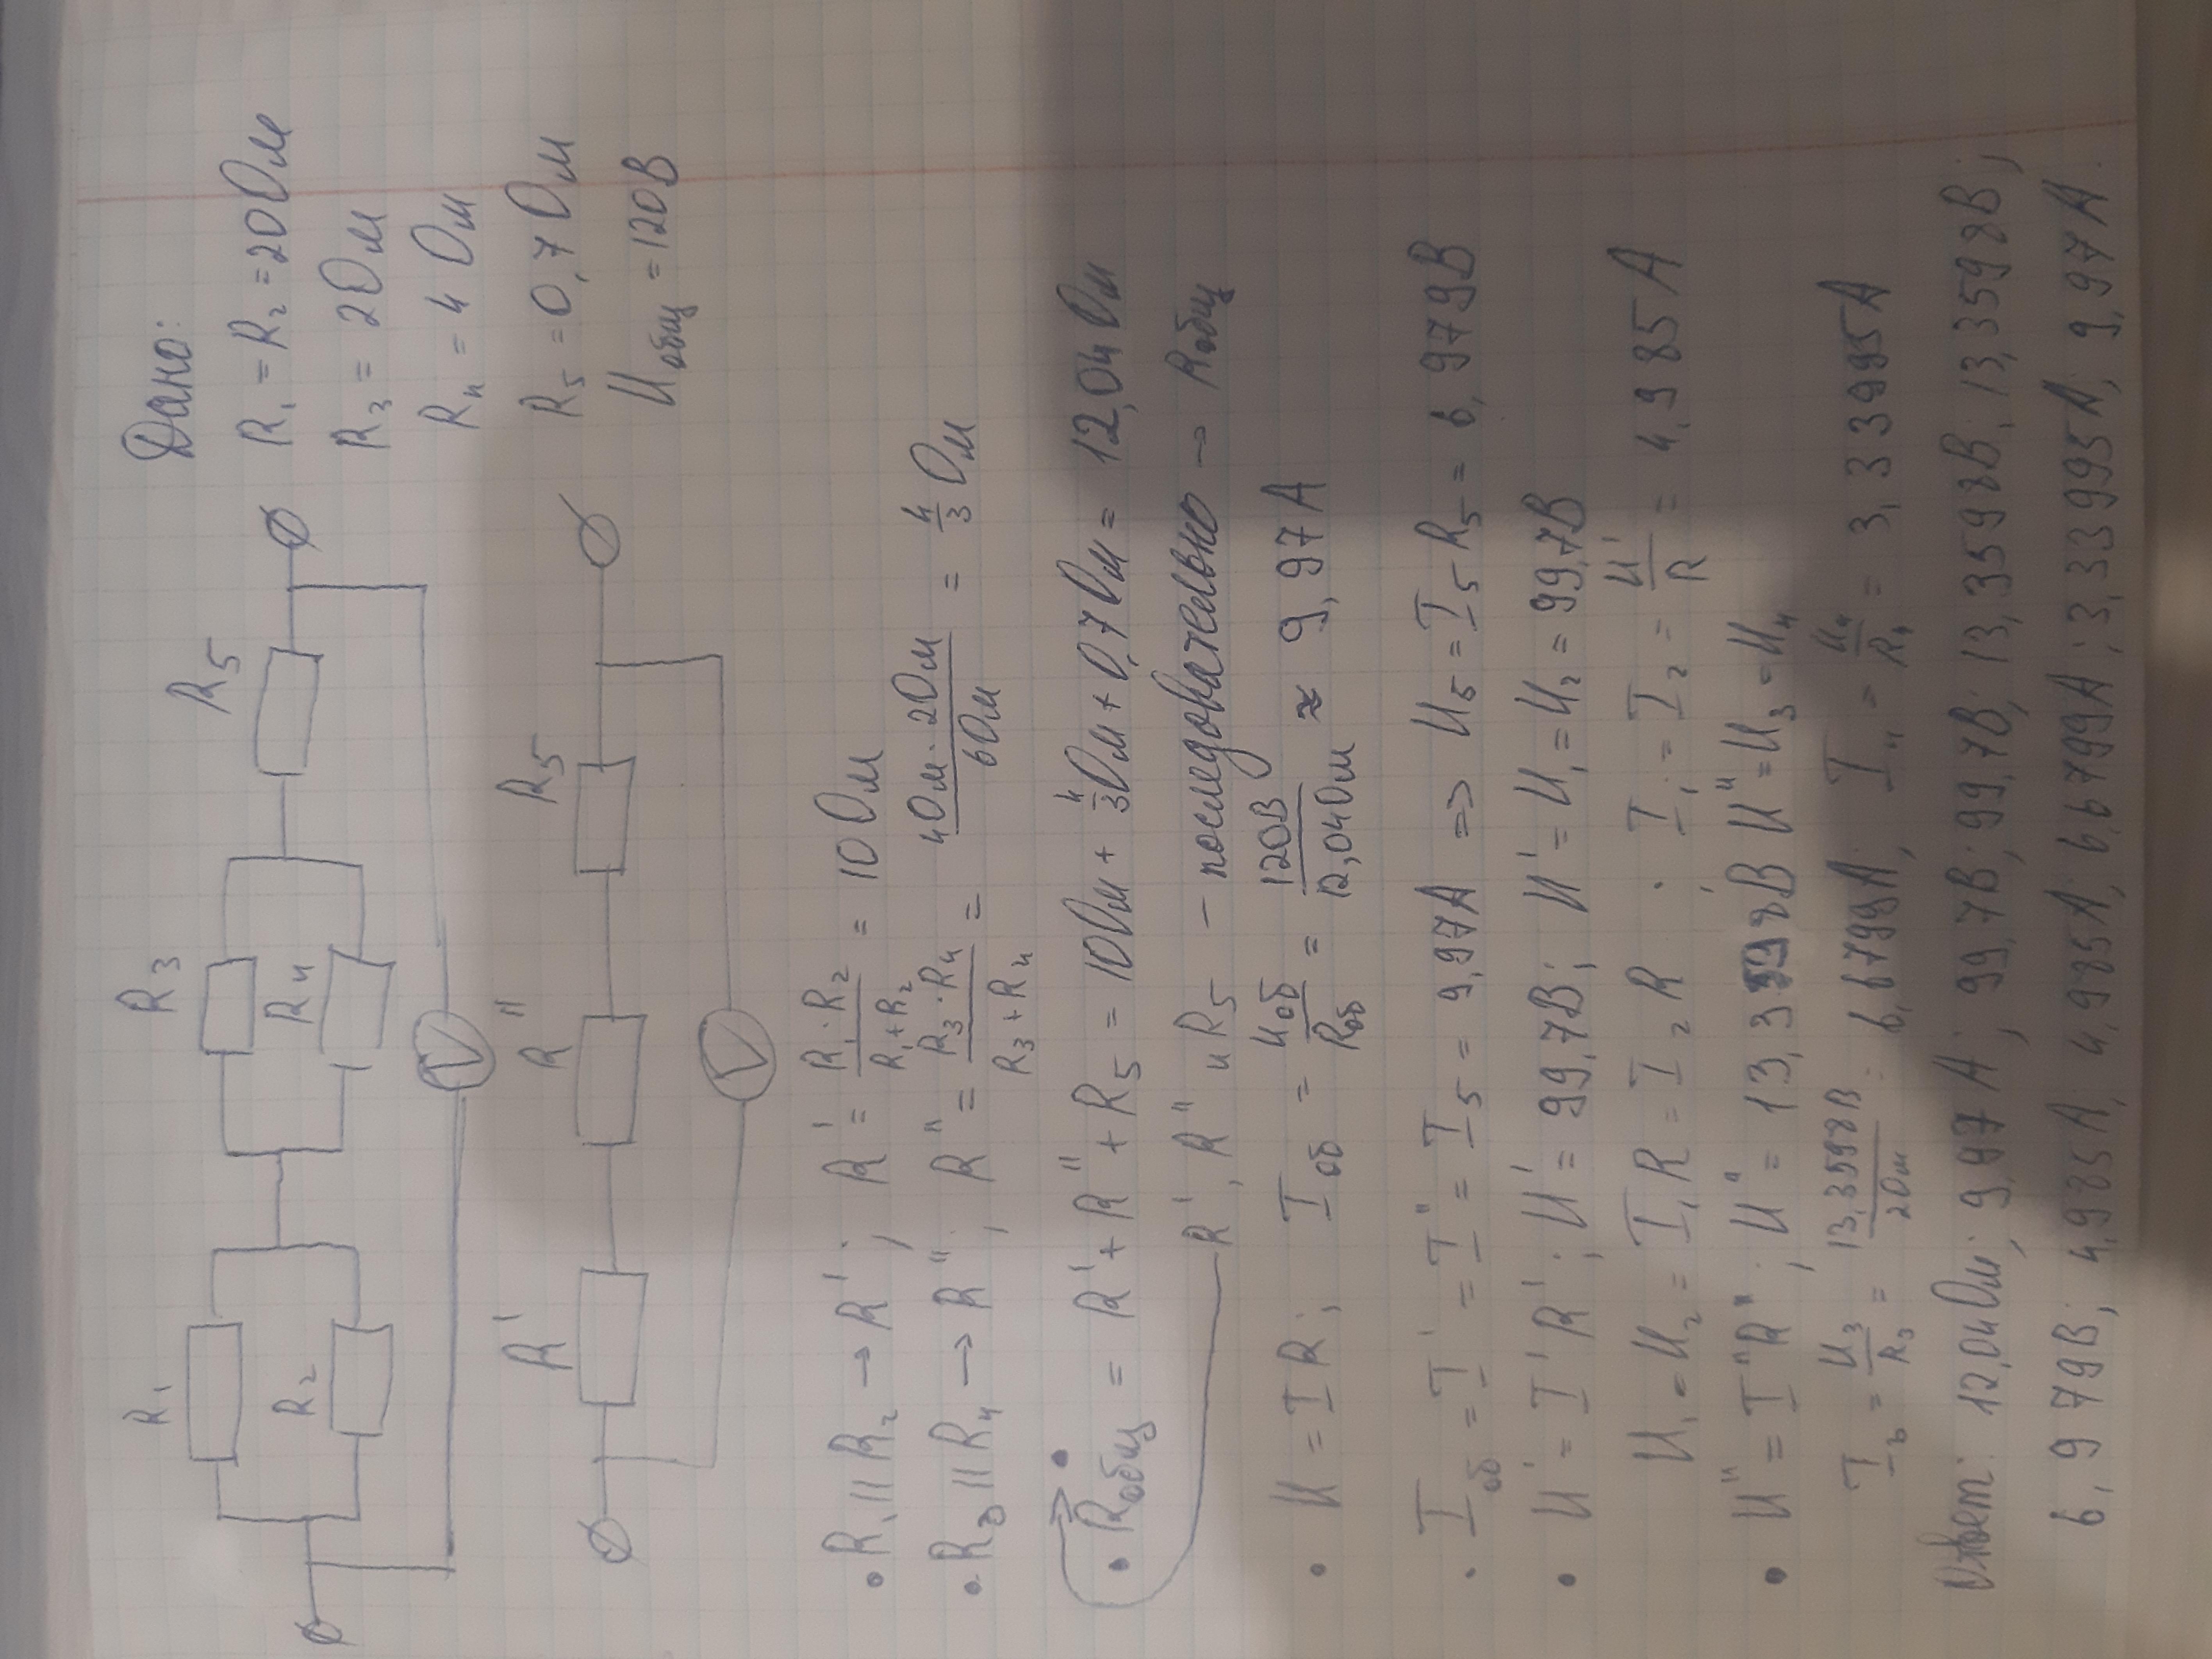 R₁
R₂
R₃
R₄
R₅
V
Дано:
R₁ = R₂ = 20 Ом
R₃ = 2 Ом
R₄ = 4 Ом
R₅ = 0,7 Ом
Uобщ = 120 В
R'
R''
R₅
V
• R₁ || R₂ → R' ; R' = R₁·R₂/R₁+R₂ = 10 Ом
• R₃ || R₄ → R'' ; R'' = R₃·R₄/R₃+R₄ = 4 Ом · 2 Ом/6 Ом = 4/3 Ом
• Rобщ = R' + R'' + R₅ = 10 Ом + 4/3 Ом + 0,7 Ом = 12,04 Ом
R', R'' и R₅ – последовательно → Rобщ
• U = IR ; Iоб = Uоб/Rоб = 120 В/12,04 Ом ≈ 9,97 А
• Iоб = I' = I'' = I₅ = 9,97 А => U₅ = I₅R₅ = 6,979 В
• U' = I'R' ; U' = 99,7 В ; U' = U₁ = U₂ = 99,7 В
U₁ = U₂ = I₁R = I₂R ; I₁ = I₂ = U'/R = 4,985 А
• U'' = I''R'' ; U'' = 13,3598 В U'' = U₃ = U₄
I₃ = U₃/R₃ = 13,3598 В/2 Ом = 6,6799 А ; I₄ = U₄/R₄ = 3,33995 А
Ответ: 12,04 Ом ; 9,97 А ; 99,7 В ; 99,7 В ; 13,3598 В ; 13,3598 В ;
6,979 В ; 4,985 А ; 4,985 А ; 6,6799 А ; 3,33995 А ; 9,97 А.